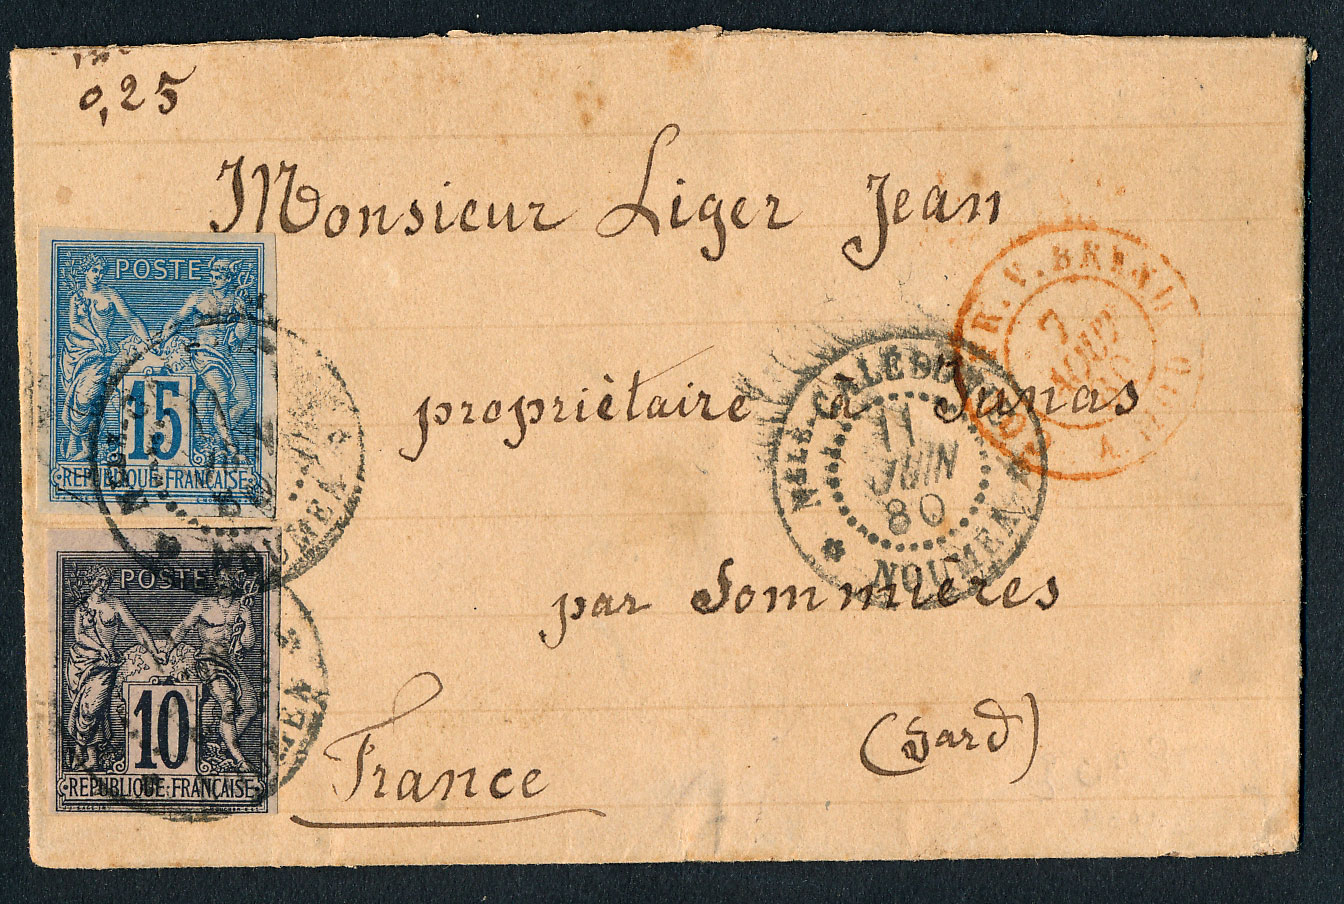 0,25
Monsieur Liger Jean
propriètaire à Junas
par Sommières
(Gard)
France
POSTE
15
REPUBLIQUE FRANÇAISE
POSTE
10
REPUBLIQUE FRANÇAISE
NLLE CALEDONIE
11
JUIN
80
NOUMEA
NOUMEA
7
AOUT
80